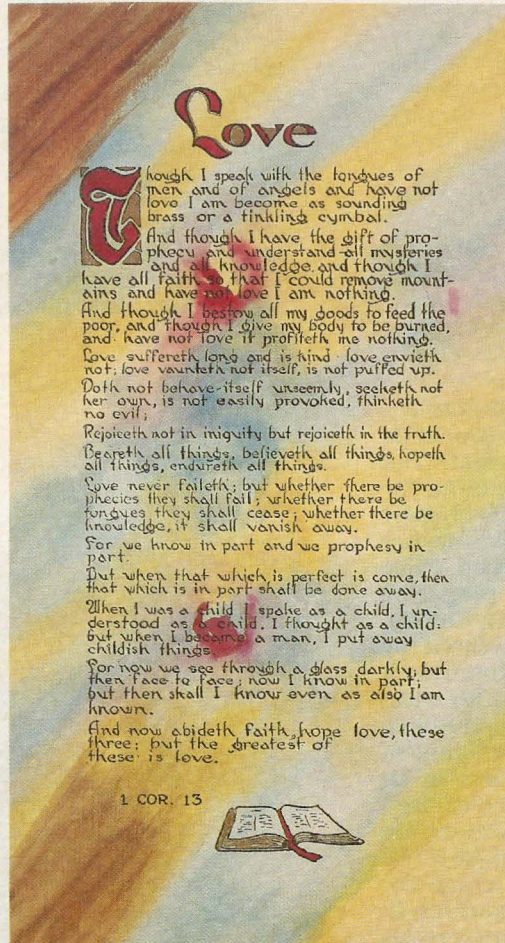 Love
Though I speak with the tongues of
men and of angels and have not
love I am become as sounding
brass or a tinkling cymbal.
And though I have the gift of pro-
phecy and understand all mysteries
and all knowledge, and though I
have all faith so that I could remove mount-
ains and have not love I am nothing.
And though I bestow all my goods to feed the
poor, and though I give my body to be burned,
and have not love it profiteth me nothing.
Love suffereth long and is kind love envieth
not; love vaunteth not itself, is not puffed up.
Doth not behave-itself unseemly, seeketh not
her own, is not easily provoked, thinketh
no evil;
Rejoiceth not in iniquity but rejoiceth in the truth.
Beareth all things, believeth all things, hopeth
all things, endureth all things.
Love never faileth; but whether there be pro-
phecies they shall fail; whether there be
tongues they shall cease; whether there be
knowledge, it shall vanish away.
For we know in part and we prophesy in
part.
But when that which is perfect is come, then
that which is in part shall be done away.
When I was a child I spake as a child, I un-
derstood as a child. I thought as a child:
but when I became a man, I put away
childish things.
For now we see through a glass darkly; but
then face to face; now I know in part;
but then shall I know even as also I am
known.
And now abideth faith, hope love, these
three; but the greatest of
these is love.
1 COR. 13